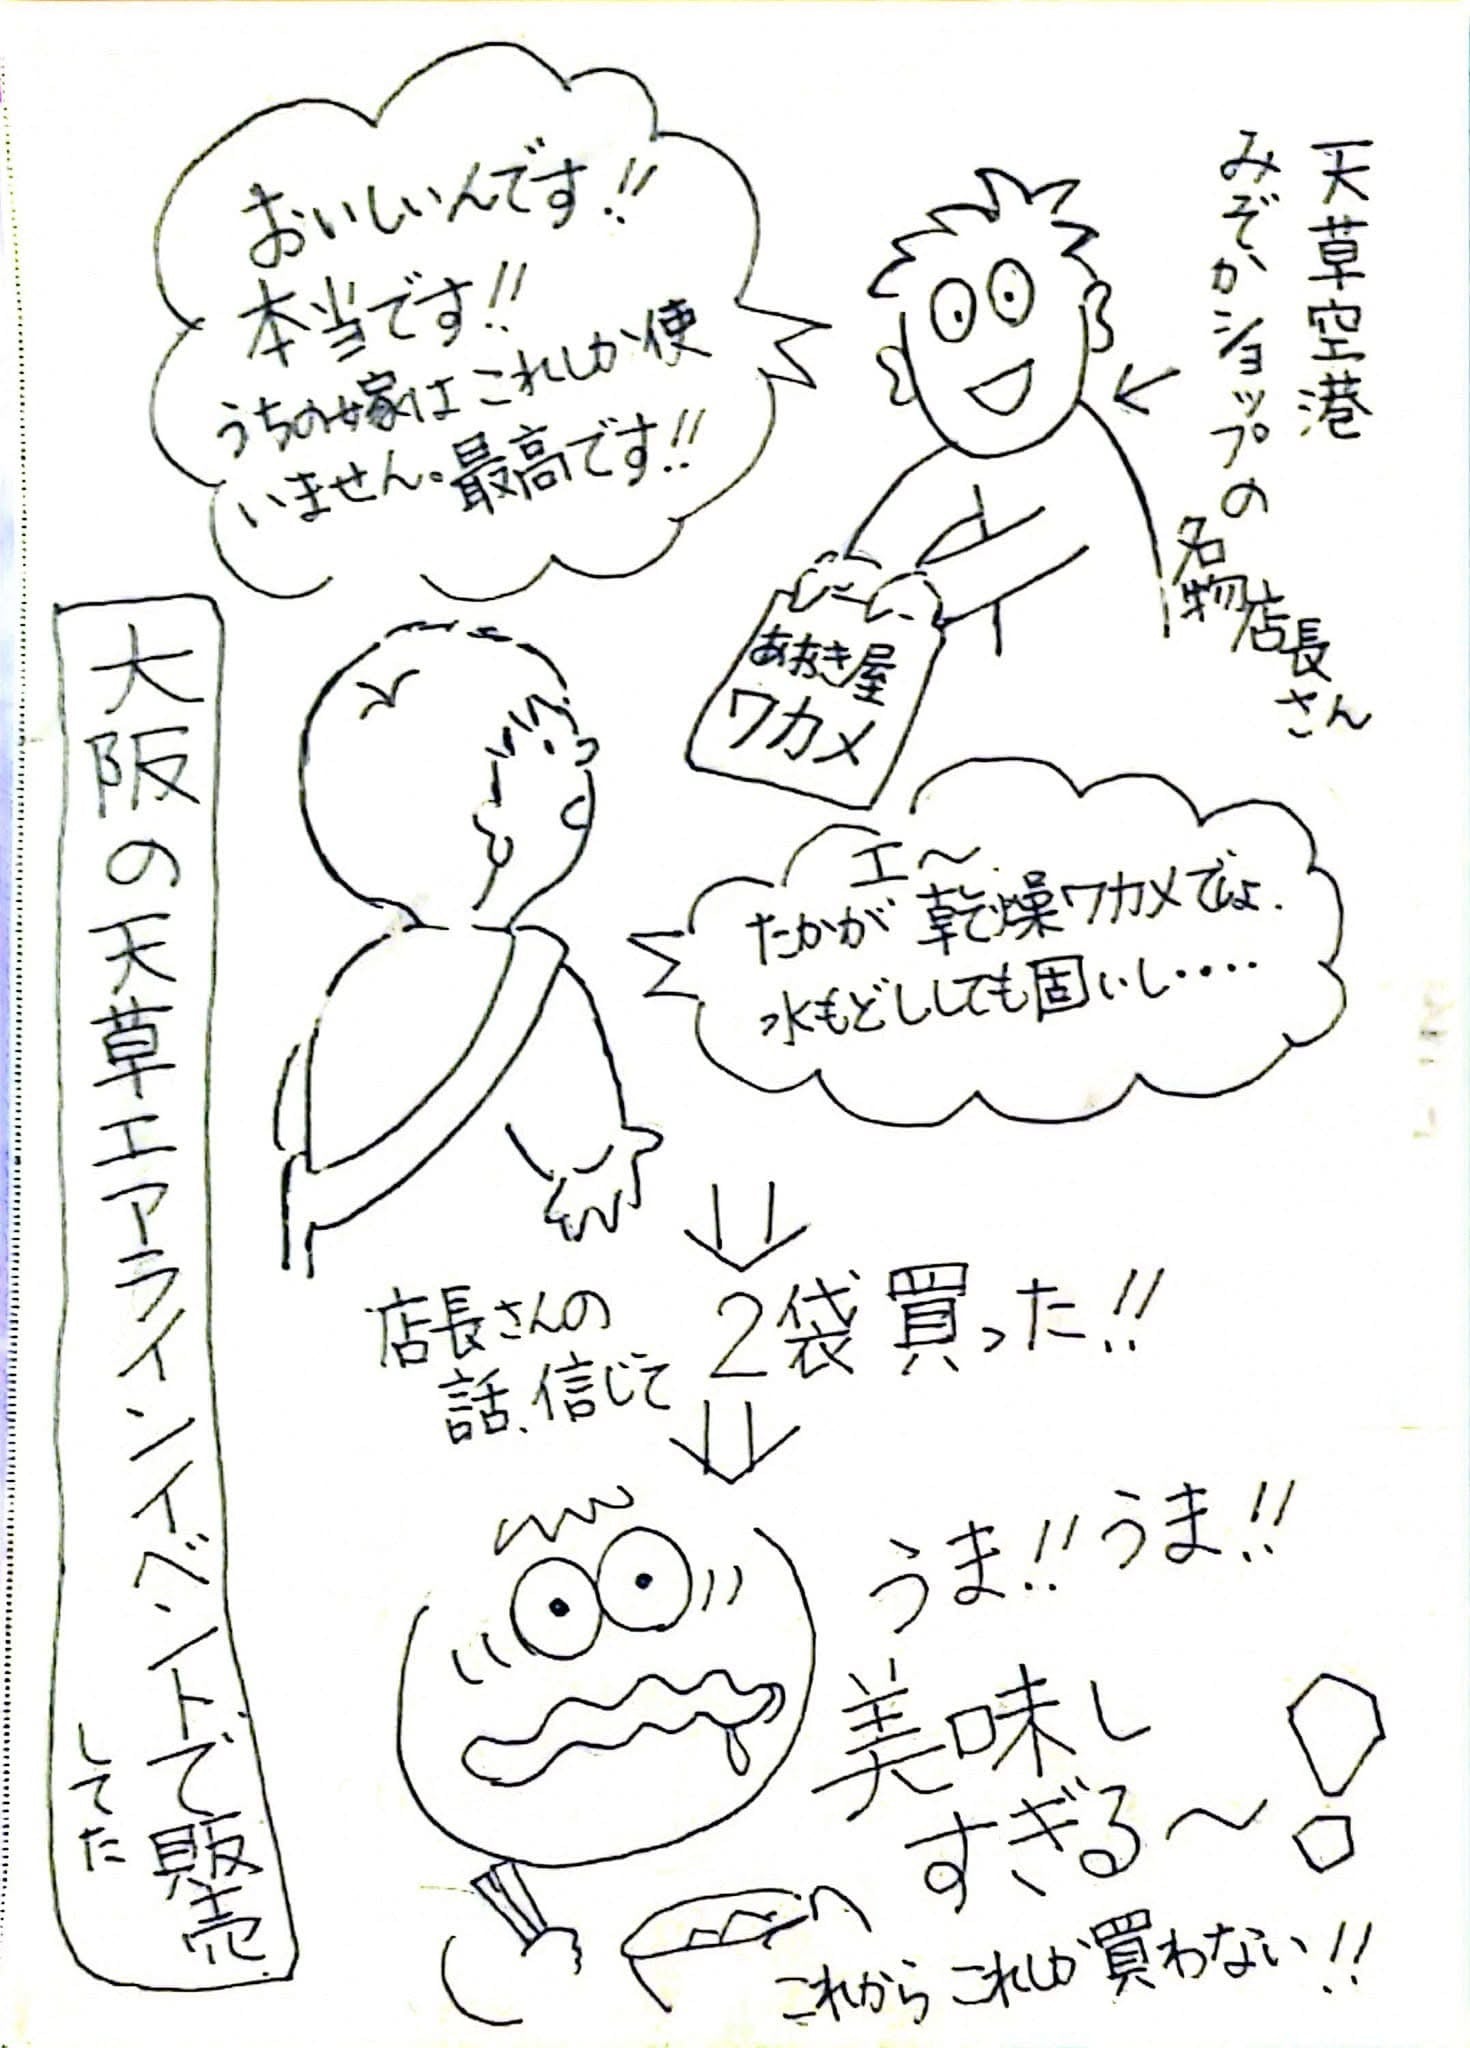 天草空港
みぞかショップの
名物店長さん
おいしいんです!!
本当です!!
うちの嫁はこれしか使
いません。最高です!!
あおき屋
ワカメ
エ〜
たかが乾燥ワカメでしょ.
水もどししても固いし・・・・
大阪の天草エアラインイベントで販売
してた
店長さんの
話、信じて
2袋買った!!
うま!!うま!!
美味し
すぎる〜!
これからこれしか買わない!!